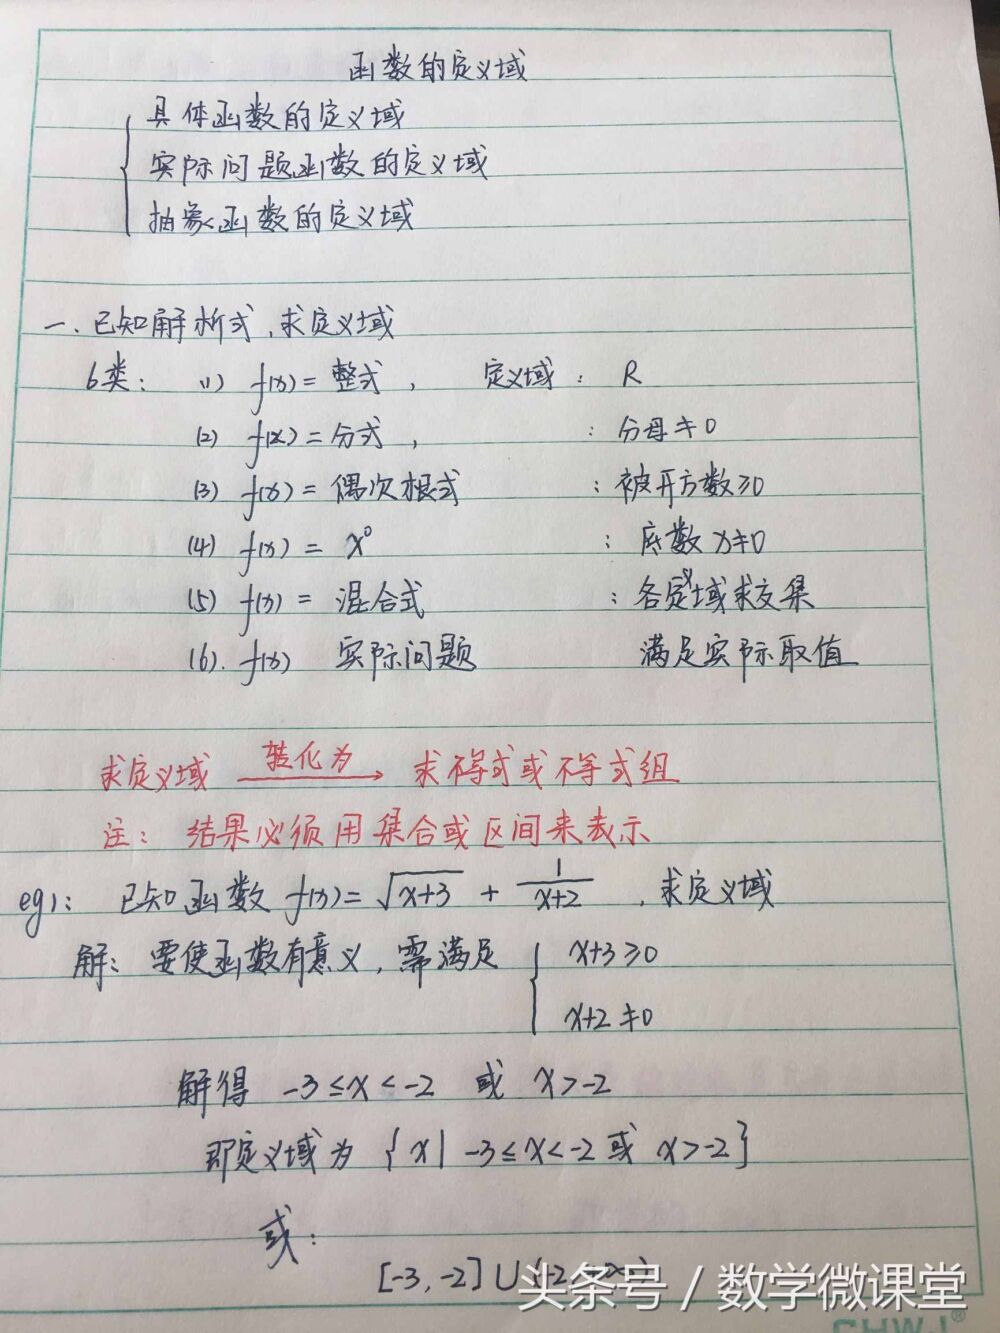 函数的定义域
具体函数的定义域
实际问题函数的定义域
抽象函数的定义域
一、已知解析式,求定义域
6类: (1) f(x)=整式, 定义域: R
(2) f(x)=分式, : 分母≠0
(3) f(x)=偶次根式 : 被开方数≥0
(4) f(x)= x⁰ : 底数x≠0
(5) f(x)= 混合式 : 各定义域求交集
(6). f(x) 实际问题 满足实际取值
求定义域 转化为→ 求不等式或不等式组
注: 结果必须用集合或区间来表示
eg1: 已知函数 f(x)=√(x+3) + 1/(x+2) ,求定义域
解: 要使函数有意义,需满足 { x+3≥0
x+2≠0
解得 -3≤x<-2 或 x>-2
即定义域为 {x| -3≤x<-2或 x>-2}
或:
[-3,-2]∪(-2
头条号/数学微课堂